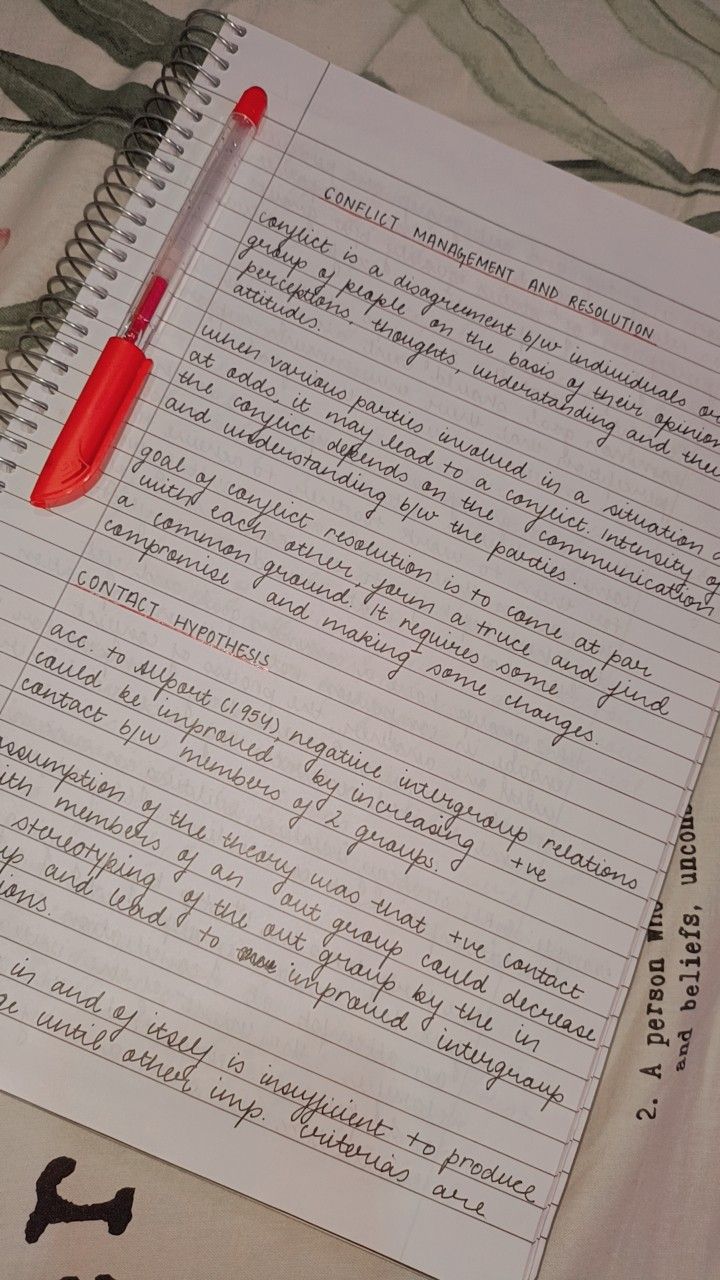 CONFLICT MANAGEMENT AND RESOLUTION
conflict is a disagreement b/w individuals or
group of people on the basis of their opinion
perceptions, thoughts, understanding and their
attitudes.
when various parties involved in a situation
at odds it may lead to a conflict. Intensity of
the conflict depends on the communication
and understanding b/w the parties.
goal of conflict resolution is to come at par
with each other, form a truce and find
a common ground. It requires some
compromise and making some changes.
CONTACT HYPOTHESIS
acc. to Allport (1954), negative intergroup relations
could be improved by increasing +ve
contact b/w members of 2 groups.
assumption of the theory was that +ve contact
with members of an out group could decrease
stereotyping of the out group by the in
up and lead to improved intergroup
ions.
in and of itself is insufficient to produce
ge until other imp. criterias are
2. A person who
and beliefs, uncons
I